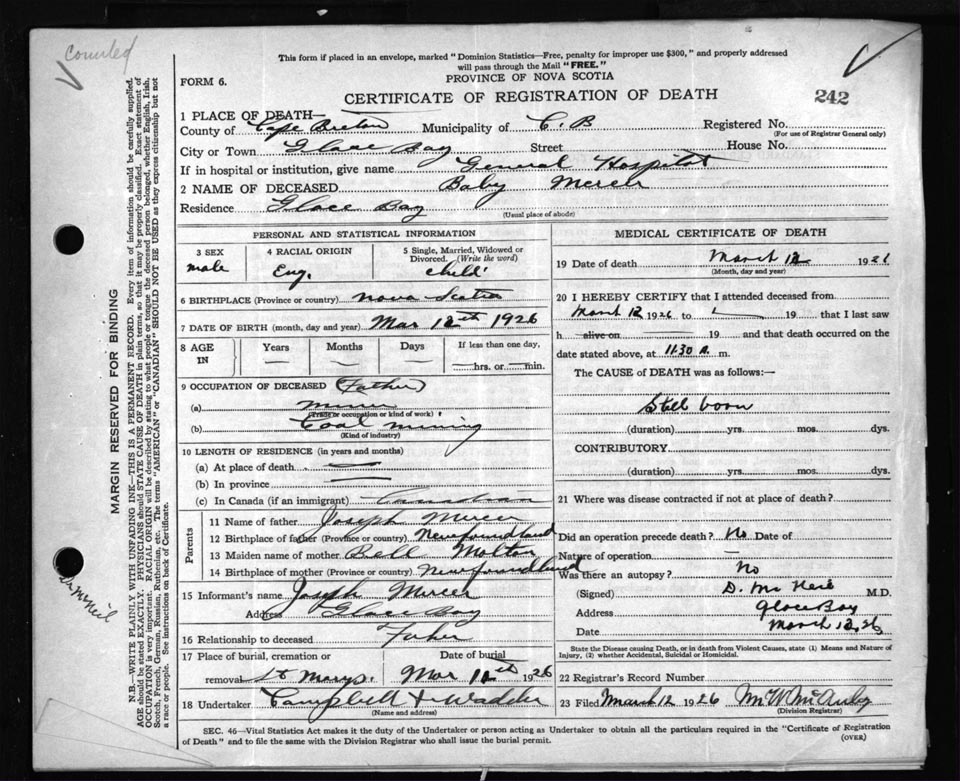 Counted
This form if placed in an envelope, marked "Dominion Statistics—Free, penalty for improper use $300," and properly addressed
will pass through the Mail "FREE."
FORM 6.
PROVINCE OF NOVA SCOTIA
CERTIFICATE OF REGISTRATION OF DEATH
242
1 PLACE OF DEATH—
County of Cape Breton Municipality of C. B Registered No.
(For use of Registrar General only)
City or Town Glace Bay Street House No.
If in hospital or institution, give name General Hospital
2 NAME OF DECEASED Baby Mercer
Residence Glace Bay
(Usual place of abode)
PERSONAL AND STATISTICAL INFORMATION
3 SEX 4 RACIAL ORIGIN 5 Single, Married, Widowed or
Divorced. (Write the word)
male Eng. child
6 BIRTHPLACE (Province or country) Nova Scotia
7 DATE OF BIRTH (month, day and year) Mar 12th 1926
8 AGE IN Years Months Days If less than one day,
— — — hrs. or min.
9 OCCUPATION OF DECEASED (Father)
(a) miner
(Trade or occupation or kind of work)
(b) Coal mining
(Kind of industry)
10 LENGTH OF RESIDENCE (in years and months)
(a) At place of death
(b) In province
(c) In Canada (if an immigrant) Canadian
Parents
11 Name of father Joseph Mercer
12 Birthplace of father (Province or country) Newfoundland
13 Maiden name of mother Bell Molton
14 Birthplace of mother (Province or country) Newfoundland
15 Informant's name Joseph Mercer
Address Glace Bay
16 Relationship to deceased Father
17 Place of burial, cremation or Date of burial
removal St Marys. Mar 12th 1926
18 Undertaker Campbell &
(Name and address)
MEDICAL CERTIFICATE OF DEATH
19 Date of death March 12 1926
(Month, day and year)
20 I HEREBY CERTIFY that I attended deceased from
March 12 1926 to 19 that I last saw
h alive on 19 and that death occurred on
date stated above, at 11.30 a. m.
The CAUSE of DEATH was as follows:—
Still born
(duration) yrs. mos. dys.
CONTRIBUTORY
(duration) yrs. mos. dys.
21 Where was disease contracted if not at place of death?
Did an operation precede death? No Date of
Nature of operation —
Was there an autopsy? No
(Signed) D. Mc Neil M.D.
Address Glace Bay
Date March 12, 26
State the Disease causing Death, or in death from Violent Causes, state (1) Means and Nature of
Injury, (2) whether Accidental, Suicidal or Homicidal.
22 Registrar's Record Number
23 Filed March 12 1926
(Division Registrar)
SEC. 46—Vital Statistics Act makes it the duty of the Undertaker or person acting as Undertaker to obtain all the particulars required in the "Certificate of Registration
of Death" and to file the same with the Division Registrar who shall issue the burial permit.
(OVER)
MARGIN RESERVED FOR BINDING
N.B. WRITE PLAINLY WITH UNFADING INK—THIS IS A PERMANENT RECORD. Every item of information should be carefully supplied.
AGE should be stated EXACTLY. PHYSICIANS should STATE CAUSE OF DEATH in plain terms, so that it may be properly classified. Exact statement of
OCCUPATION is very important. RACIAL ORIGIN will be described by stating to what people or tongue the deceased person belonged, whether English, Irish,
Scotch, French, German, Russian, Ruthenian, etc. The terms "AMERICAN" or "CANADIAN" SHOULD NOT BE USED as they express citizenship but not
a race or people. See instructions on back of Certificate.
Dr. McNeil